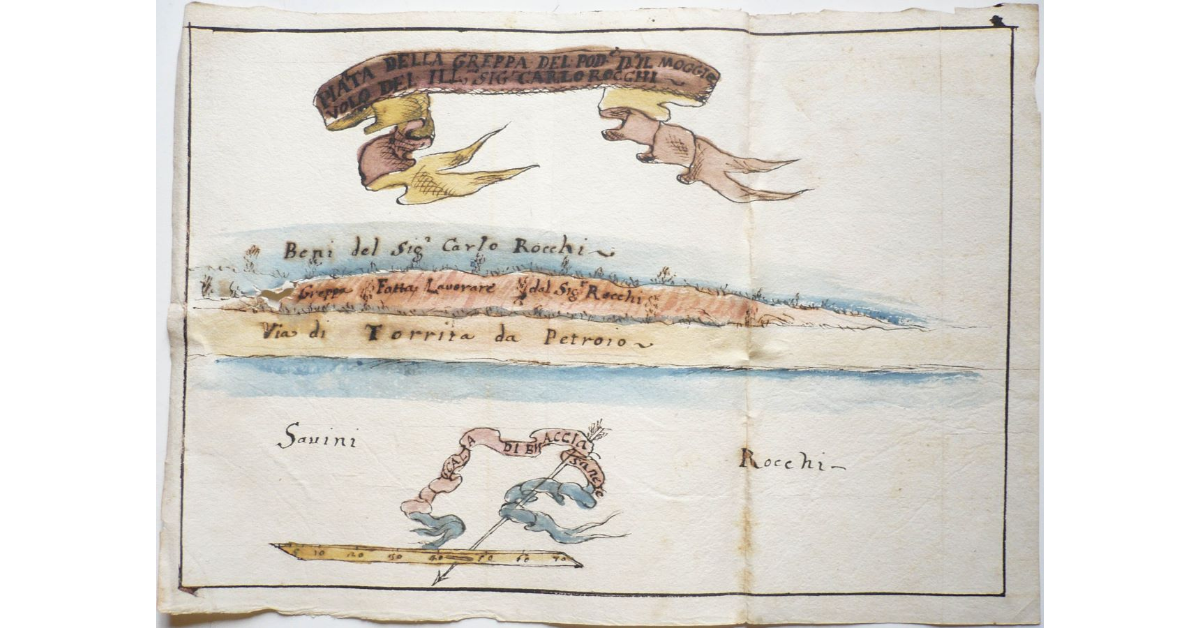 PIATA DELLA GREPPA DEL POD.e D.o IL MOGGIO
VOLO DEL ILL.o SIG.r CARLO ROCCHI
Beni del Sig.r Carlo Rocchi
Greppa Fatta Lavorare dal Sig.r Rocchi
Via di Torrita da Petroio
Savini
SCALA DI BRACCIA Sanese
Rocchi
10 20 30 40 50 60 70